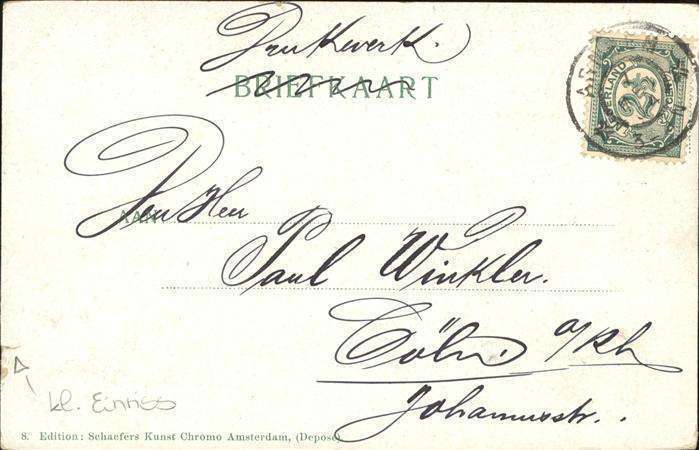 Drukwerk.
BRIEFKAART
AAN Den Heer
Paul Winkler.
Cöln a/Rh
Johannisstr.
kl. Einriss
8. Edition: Schaefers Kunst Chromo Amsterdam, (Deposé)
NEDERLAND
2½